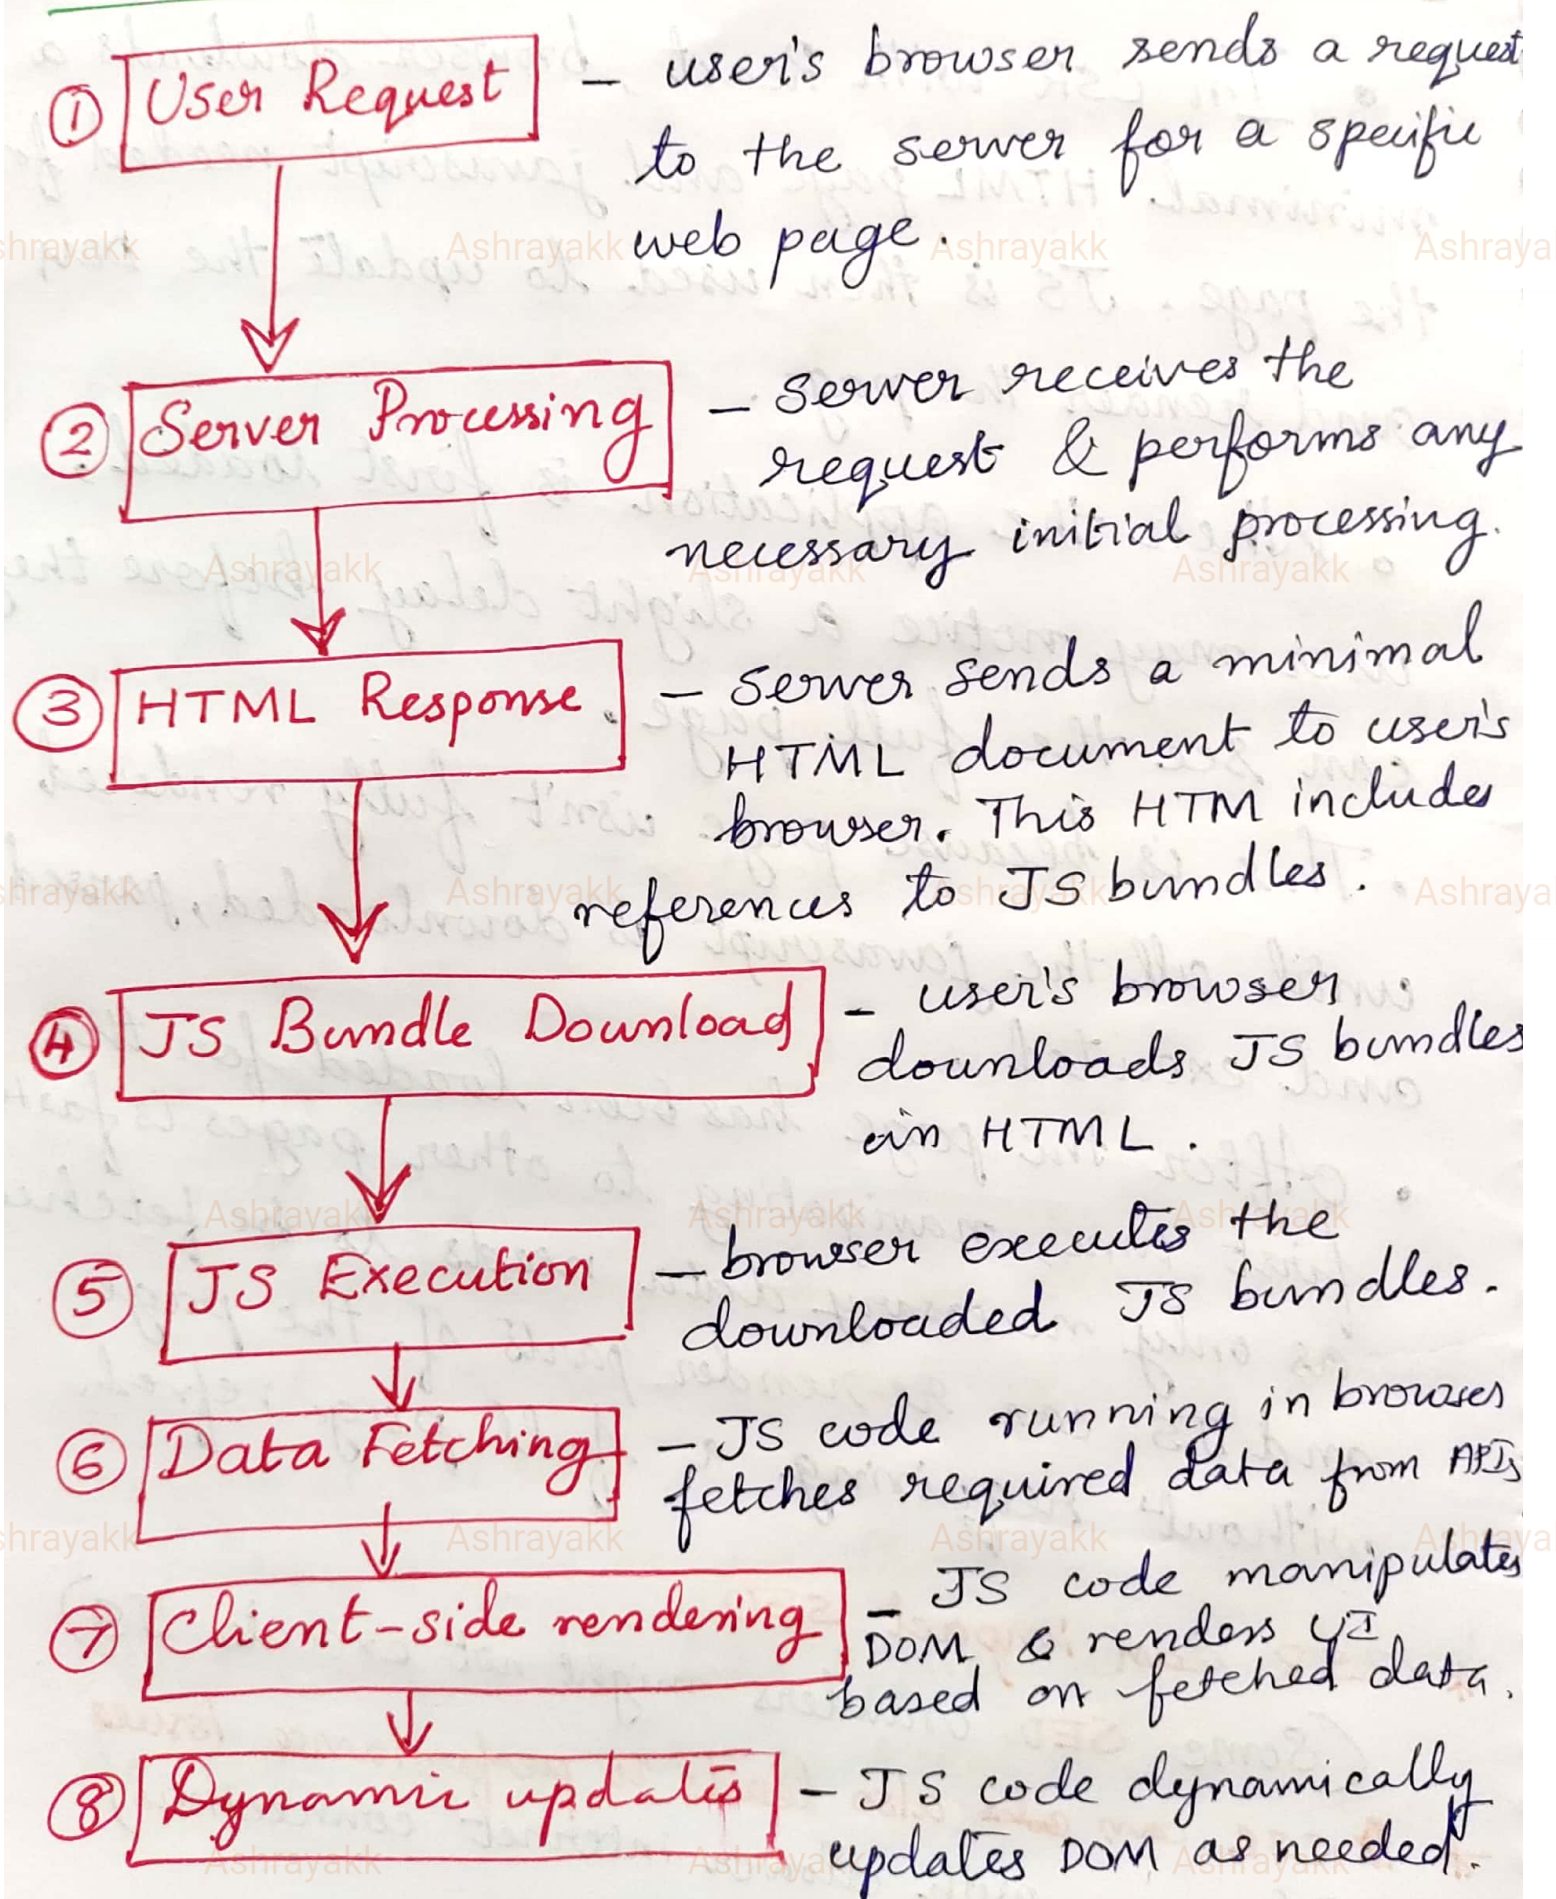 ① User Request – user's browser sends a request
to the server for a specific
web page.
② Server Processing – Server receives the
request & performs any
necessary initial processing.
③ HTML Response – Server sends a minimal
HTML document to user's
browser. This HTM includes
references to JS bundles.
④ JS Bundle Download – user's browser
downloads JS bundles
in HTML.
⑤ JS Execution – browser executes the
downloaded JS bundles.
⑥ Data Fetching – JS code running in browser
fetches required data from APIs
⑦ Client-side rendering – JS code manipulates
DOM & renders UI
based on fetched data.
⑧ Dynamic updates – JS code dynamically
updates DOM as needed.
Ashrayakk